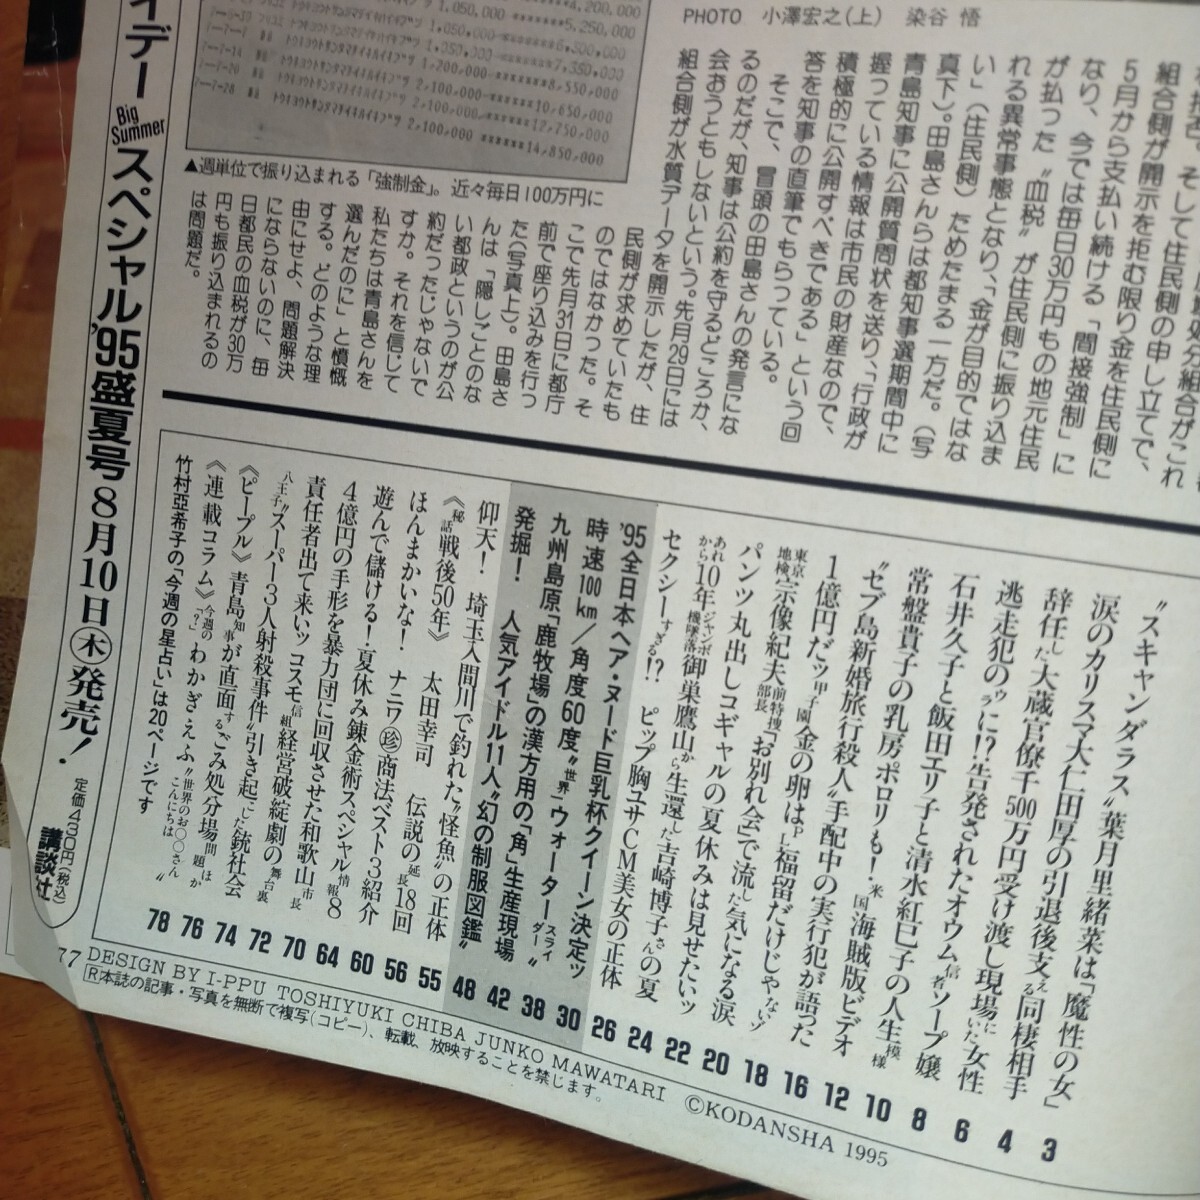 PHOTO 小澤宏之(上) 染谷 悟
4,200,000
1,050,000
5,250,000
1,050,000
6,300,000
1,050,000
7,350,000
1,200,000
8,550,000
2,100,000
10,650,000
2,100,000
12,750,000
2,100,000
14,850,000
▲週単位で振り込まれる「強制金」。近々毎日100万円に
組合側が開示を拒む限り金を住民側に
5月から支払い続ける「間接強制」に
なり、今では毎日30万円もの地元住民
が払った〝血税〟が住民側に振り込ま
れる異常事態となり、「金が目的ではな
い」(住民側)ためたまる一方だ。(写
真下)。田島さんらは都知事選期間中に
青島知事に公開質問状を送り、「行政が
握っている情報は市民の財産なので、
積極的に公開すべきである」という回
答を知事の直筆でもらっている。
そこで、冒頭の田島さんの発言にな
るのだが、知事は公約を守るどころか、
会おうともしないという。先月29日には
組合側が水質データを開示したが、住
民側が求めていたも
のではなかった。そ
こで先月31日に都庁
前で座り込みを行っ
た(写真上)。田島さ
んは「隠しごとのな
い都政というのが公
約だったじゃないで
すか。それを信じて
私たちは青島さんを
選んだのに」と憤慨
する。どのような理
由にせよ、問題解決
にならないのに、毎
日都民の血税が30万
円も振り込まれるの
は問題だ。
〝スキャンダラス〟葉月里緒菜は「魔性の女」 3
涙のカリスマ大仁田厚の引退後支える同棲相手 4
辞任した大蔵官僚千500万円受け渡し現場にいた女性 6
逃走犯のウラに!?告発されたオウム信者ソープ嬢 8
石井久子と飯田エリ子と清水紅巳子の人生模様 10
常盤貴子の乳房ポロリも!米国海賊版ビデオ 12
〝セブ島新婚旅行殺人〟手配中の実行犯が語った 16
1億円だッ甲子園金の卵はPL福留だけじゃないゾ 18
東京地検宗像紀夫前特捜部長〝お別れ会〟で流した気になる涙 20
パンツ丸出しコギャルの夏休みは見せたいッ 22
あれから10年ジャンボ機墜落御巣鷹山から生還した吉崎博子さんの夏 24
セクシーすぎる!? ピップ胸ユサCM美女の正体 26
'95全日本ヘア・ヌード巨乳杯クイーン決定ッ 30
時速100km/角度60度〝世界一ウォータースライダー〟 38
九州島原「鹿牧場」の漢方用の「角」生産現場 42
発掘! 人気アイドル11人〝幻の制服図鑑〟 48
仰天! 埼玉入間川で釣れた〝怪魚〟の正体 55
《秘話戦後50年》 太田幸司 伝説の延長18回 56
ほんまかいな! ナニワ㊙商法ベスト3紹介 60
遊んで儲ける!夏休み錬金術スペシャル情報8 64
4億円の手形を暴力団に回収させた和歌山市長 70
責任者出て来いッ コスモ信組経営破綻劇の舞台裏 72
八王子〝スーパー3人射殺事件〟引き起こした銃社会 74
《ピープル》青島知事が直面するごみ処分場問題ほか 76
《連載コラム》今週の「?」わかぎえふ〝世界のお〇〇さんこんにちは〟 78
竹村亞希子の「今週の星占い」は20ページです
イデー Big Summer スペシャル'95盛夏号 8月10日㊍発売! 定価430円(税込) 講談社
77 DESIGN BY I-PPU TOSHIYUKI CHIBA JUNKO MAWATARI ©KODANSHA 1995
Ⓡ本誌の記事・写真を無断で複写(コピー)、転載、放映することを禁じます。